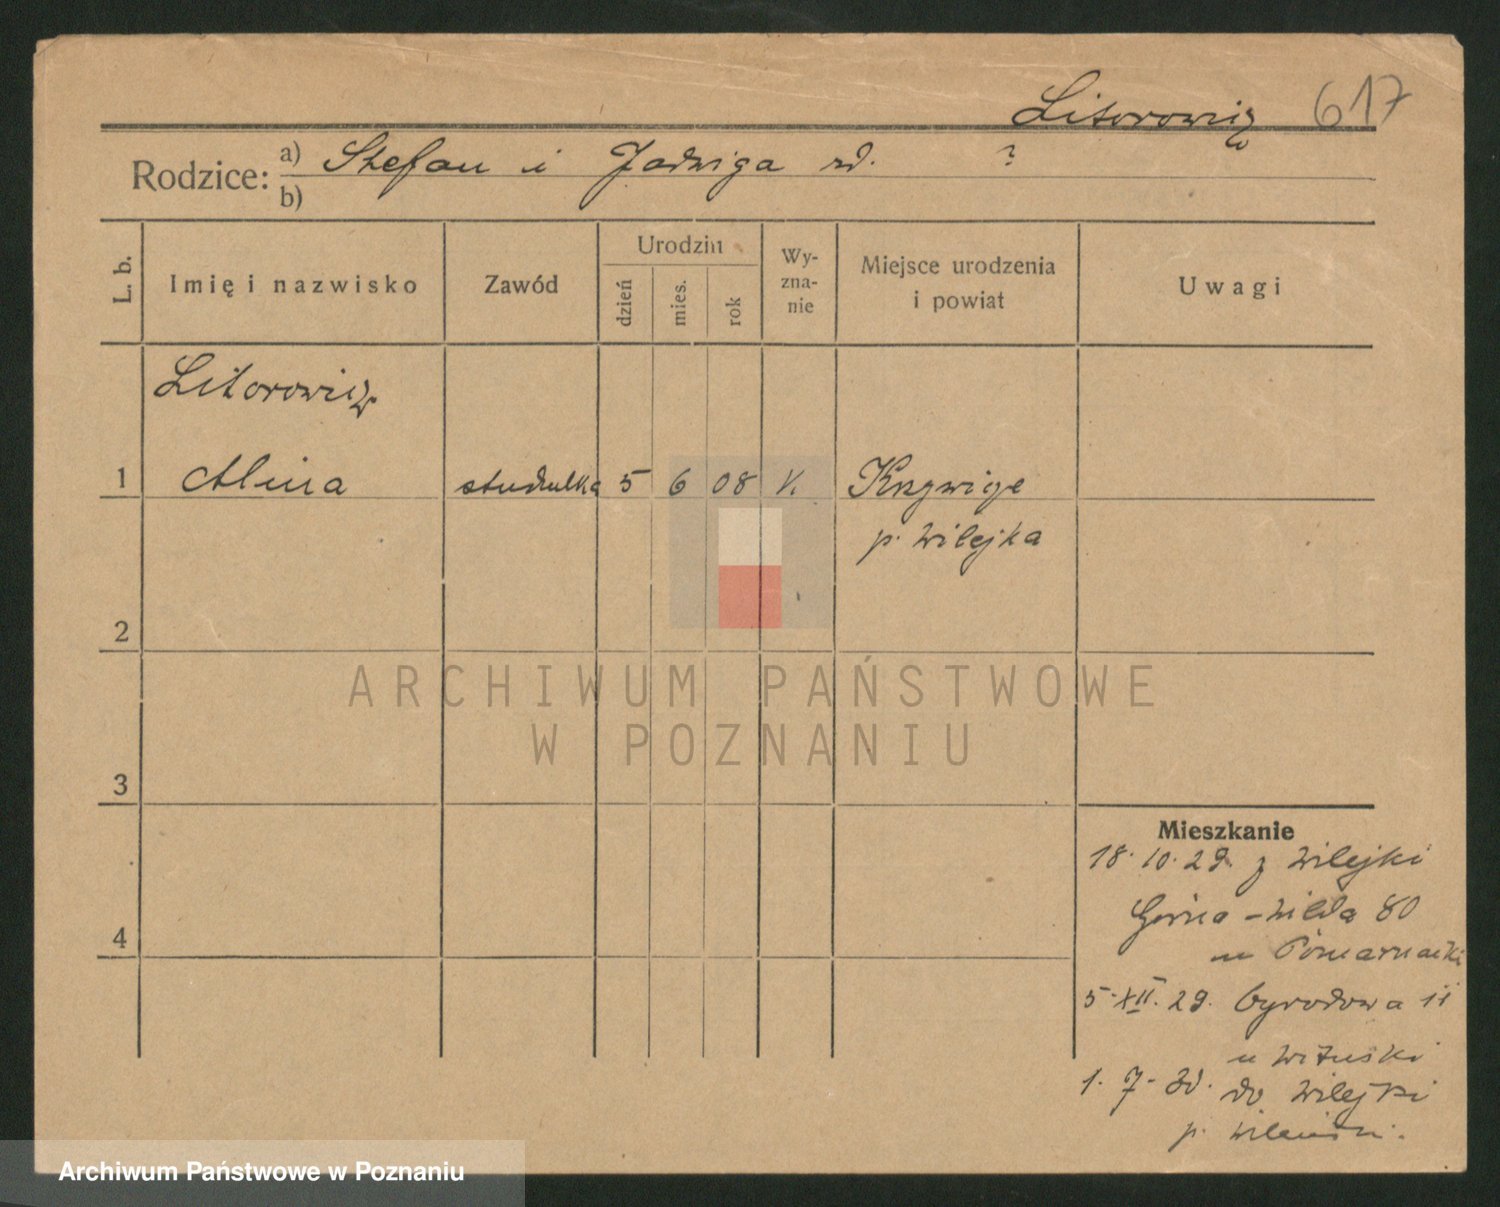 Litorowicz 617
Rodzice: a) Stefan i Jadwiga zd. ?
b)
L. b.
Imię i nazwisko
Zawód
Urodzin
dzień
mies.
rok
Wy-
zna-
nie
Miejsce urodzenia
i powiat
Uwagi
Litorowicz
1 Alina studentka 5 6 08 k.
p. Wilejka
2
3
4
Mieszkanie
18.10.29. z Wilejki
Górna-Wilda 80
u
5.XII.29. Ogrodowa 11
u
1.7.30. do Wilejki
p.
ARCHIWUM PAŃSTWOWE
W POZNANIU
Archiwum Państwowe w Poznaniu